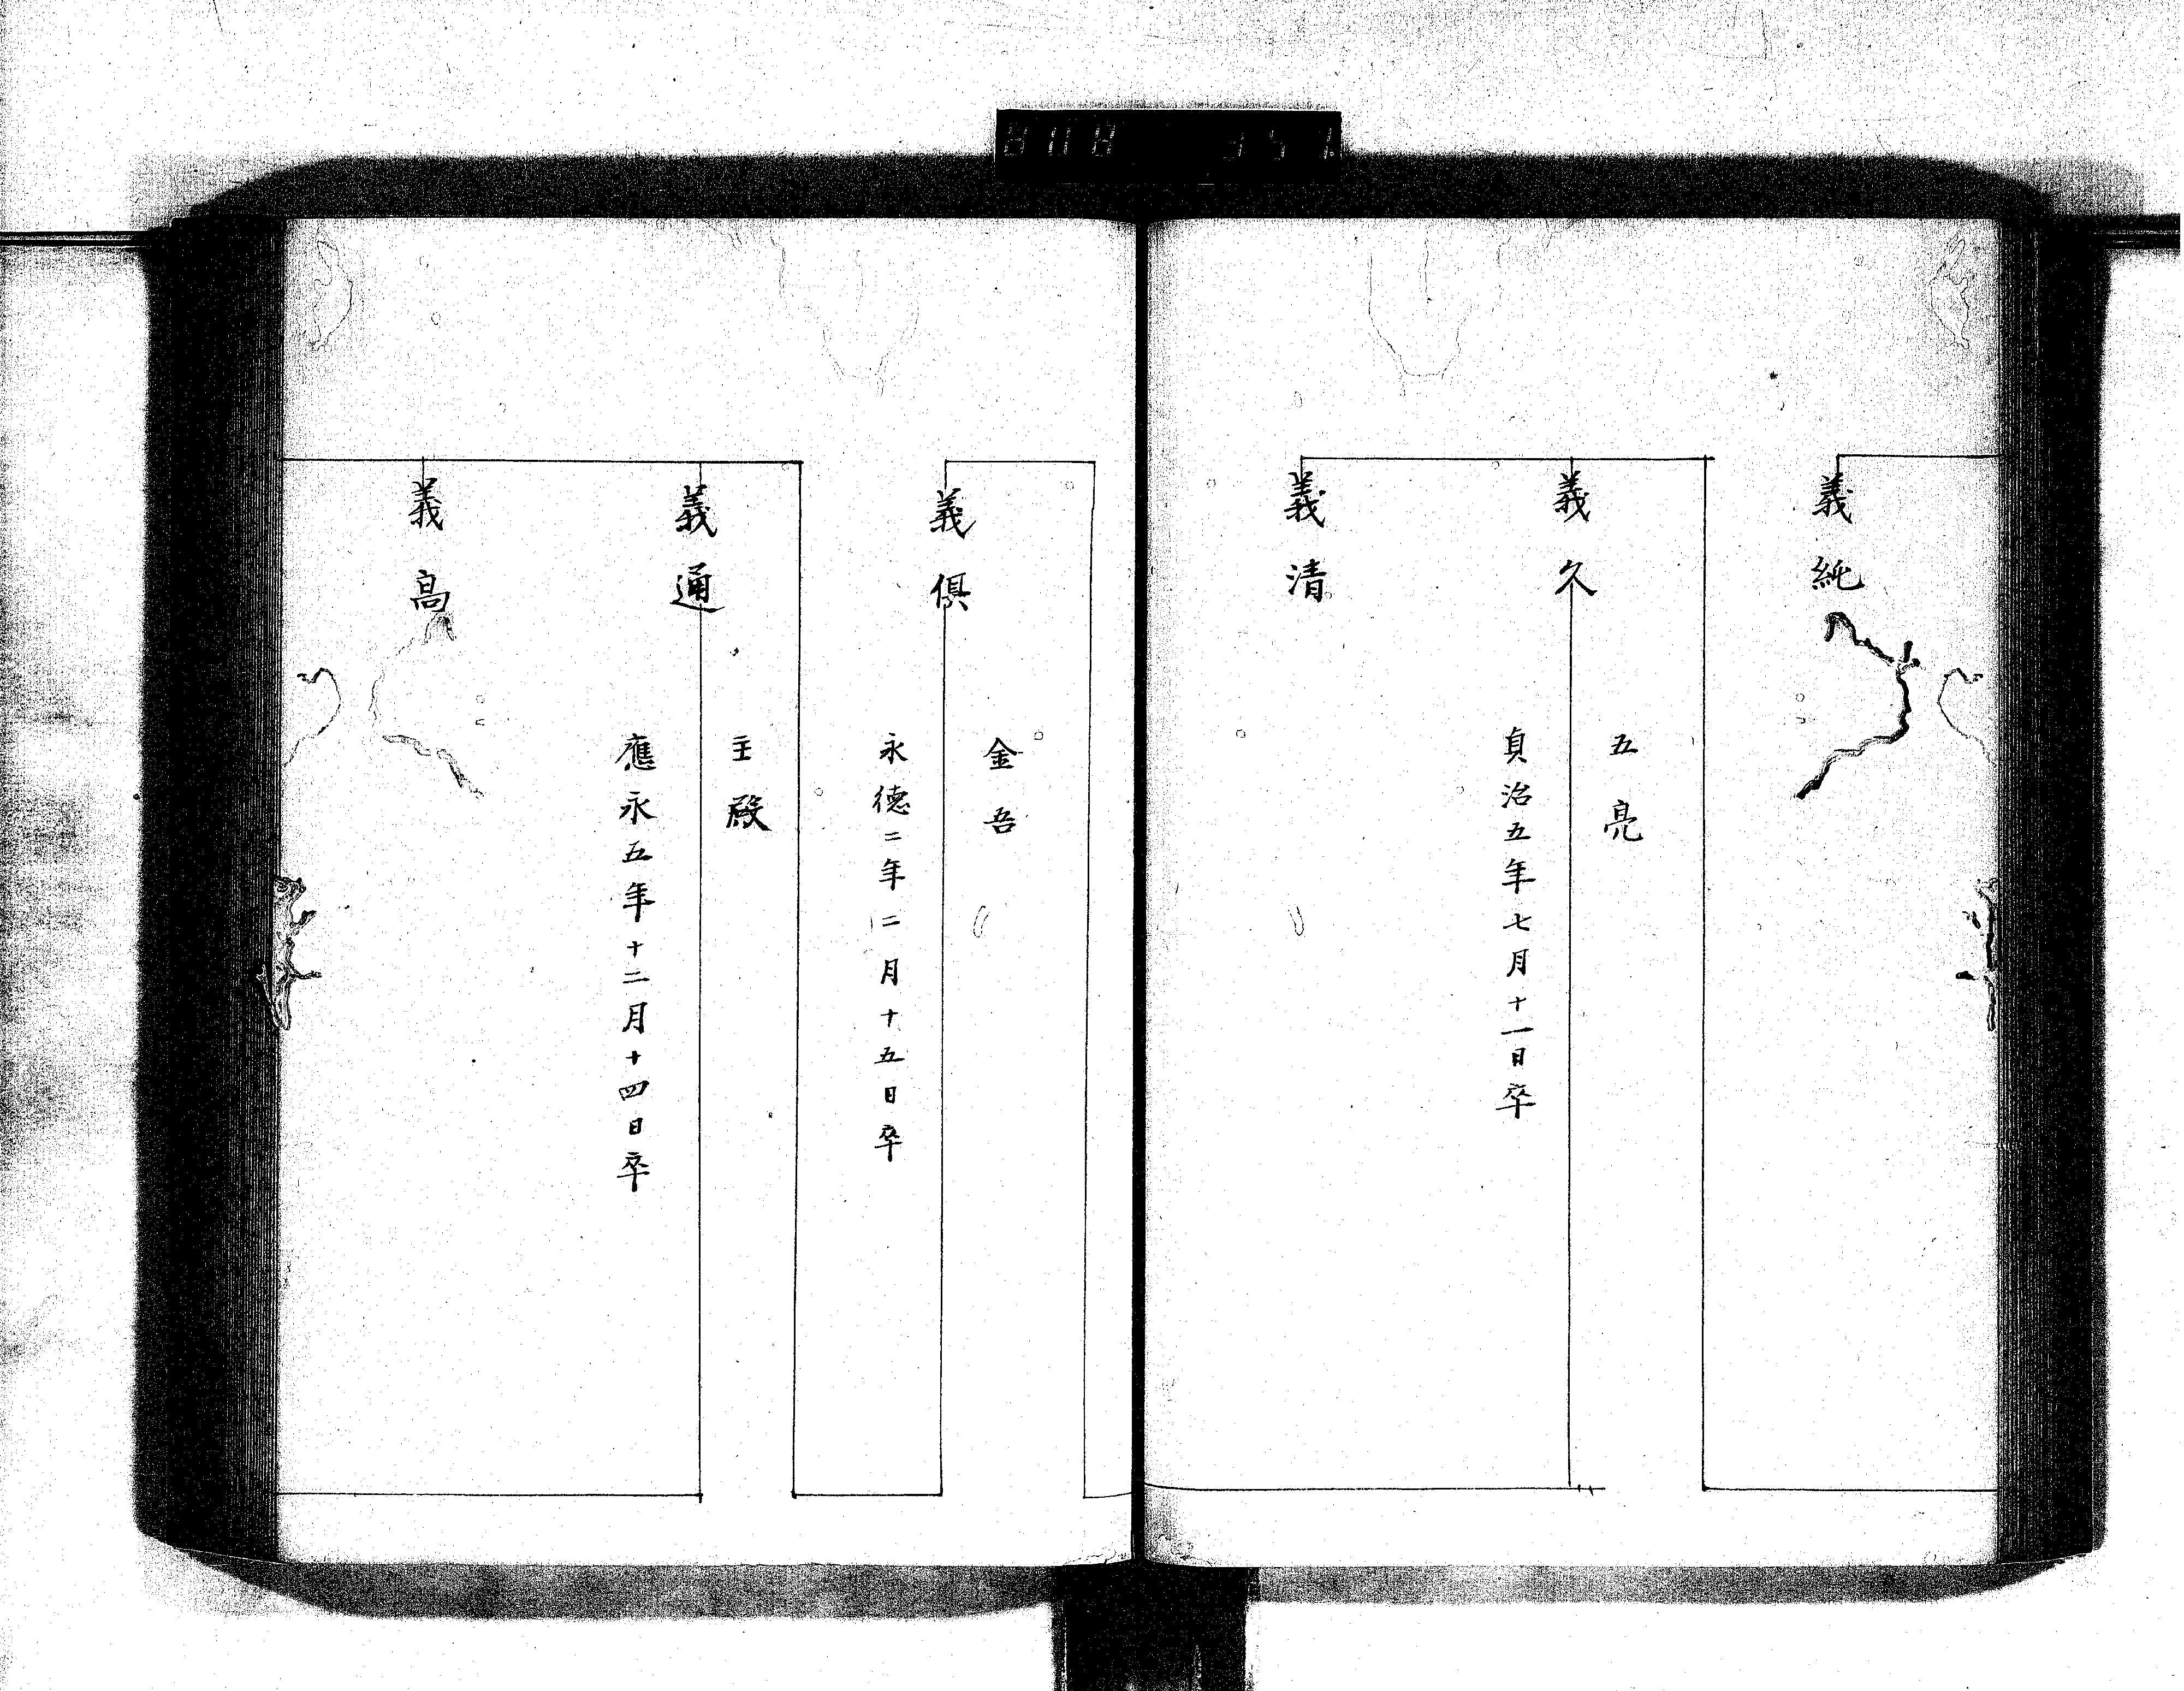 義純
五亮
義久
貞治五年七月十一日卒
義清
金吾
義俱
永德二年二月十五日卒
主殿
義通
應永五年十二月十四日卒
義高